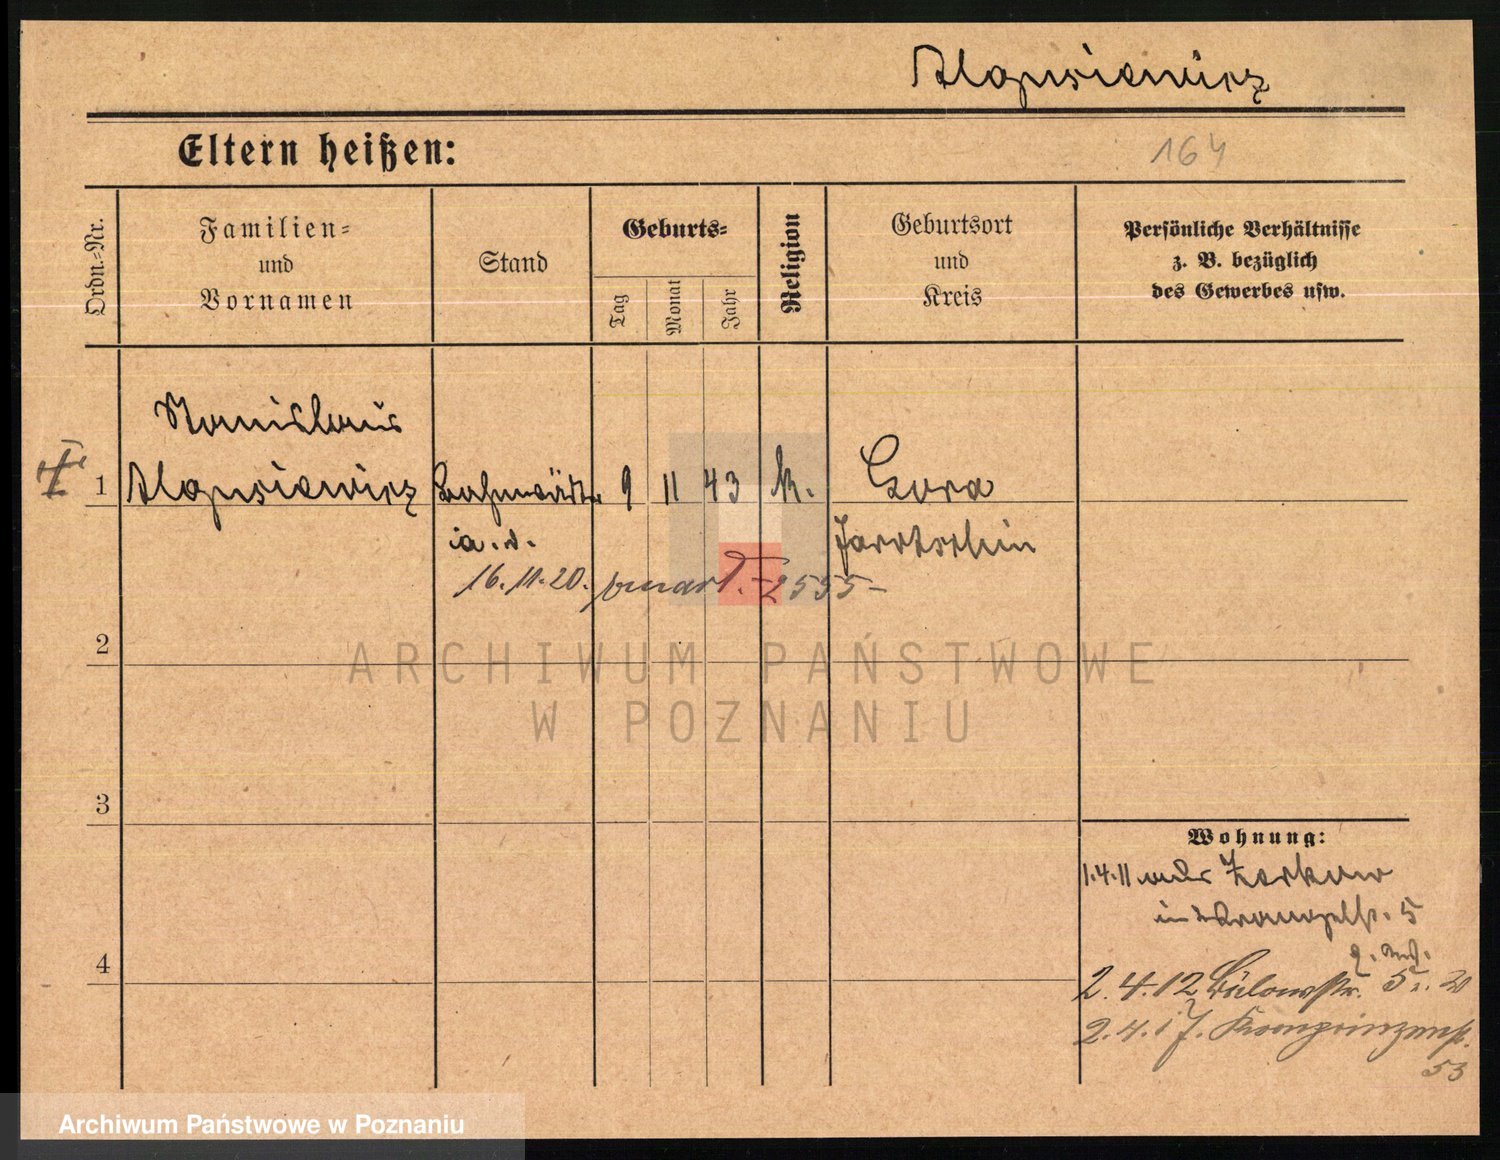 Alopusiewicz
Eltern heißen:
164
Ordn.-Nr.
Familien-
und
Vornamen
Stand
Geburts-
Tag
Monat
Jahr
Religion
Geburtsort
und
Kreis
Persönliche Verhältnisse
z. B. bezüglich
des Gewerbes usw.
Stanislaus
1 9 11 43 k. Gora
Jarotschin
16.11.20. 2555
ARCHIWUM PAŃSTWOWE
W POZNANIU
2
3
Wohnung:
1.4.11 Zerkow
5
4
2.4.12 Bülowstr. 5
2.4.17. Kronprinzenstr.
53
Archiwum Państwowe w Poznaniu